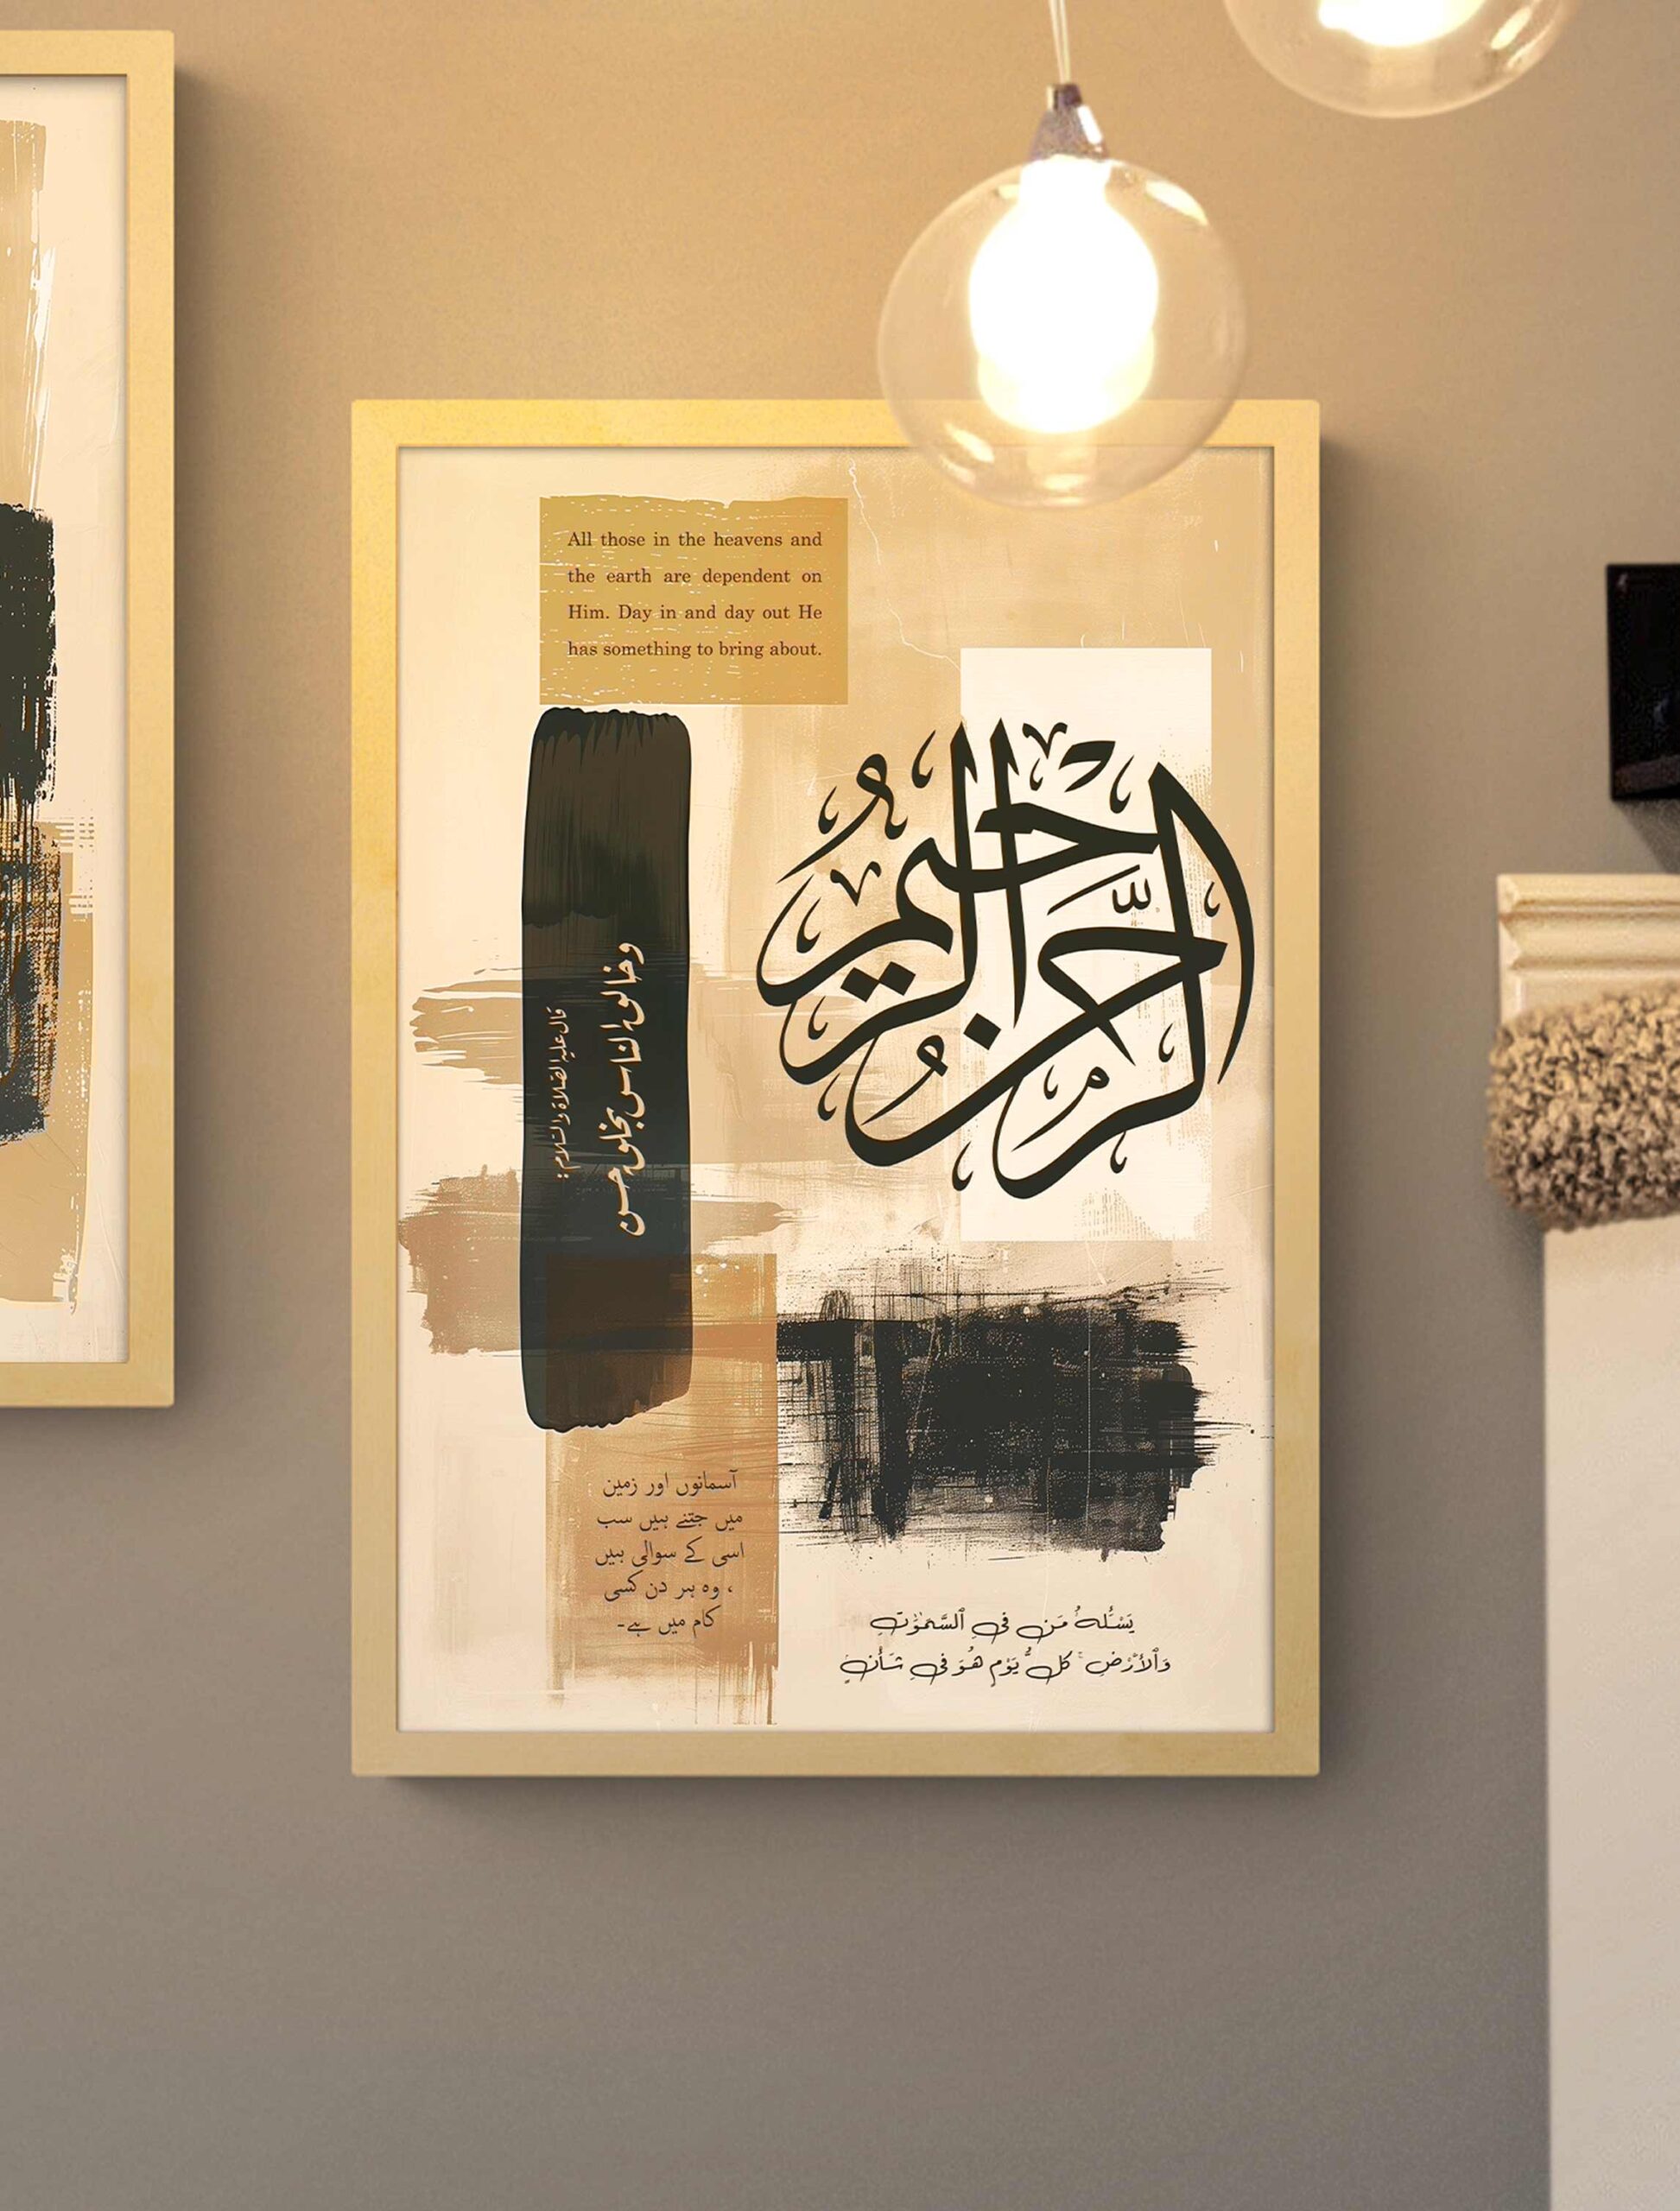 All those in the heavens and
the earth are dependent on
Him. Day in and day out He
has something to bring about.
الرحمٰن الرحيم
قال عليه الصلاة والسلام:
وخالق الناس بخلق حسن
آسمانوں اور زمین
میں جتنے ہیں سب
اسی کے سوالی ہیں
، وہ ہر دن کسی
کام میں ہے۔
يَسْـَٔلُهُۥ مَن فِى ٱلسَّمَـٰوَٰتِ
وَٱلْأَرْضِ ۚ كُلَّ يَوْمٍ هُوَ فِى شَأْنٍ